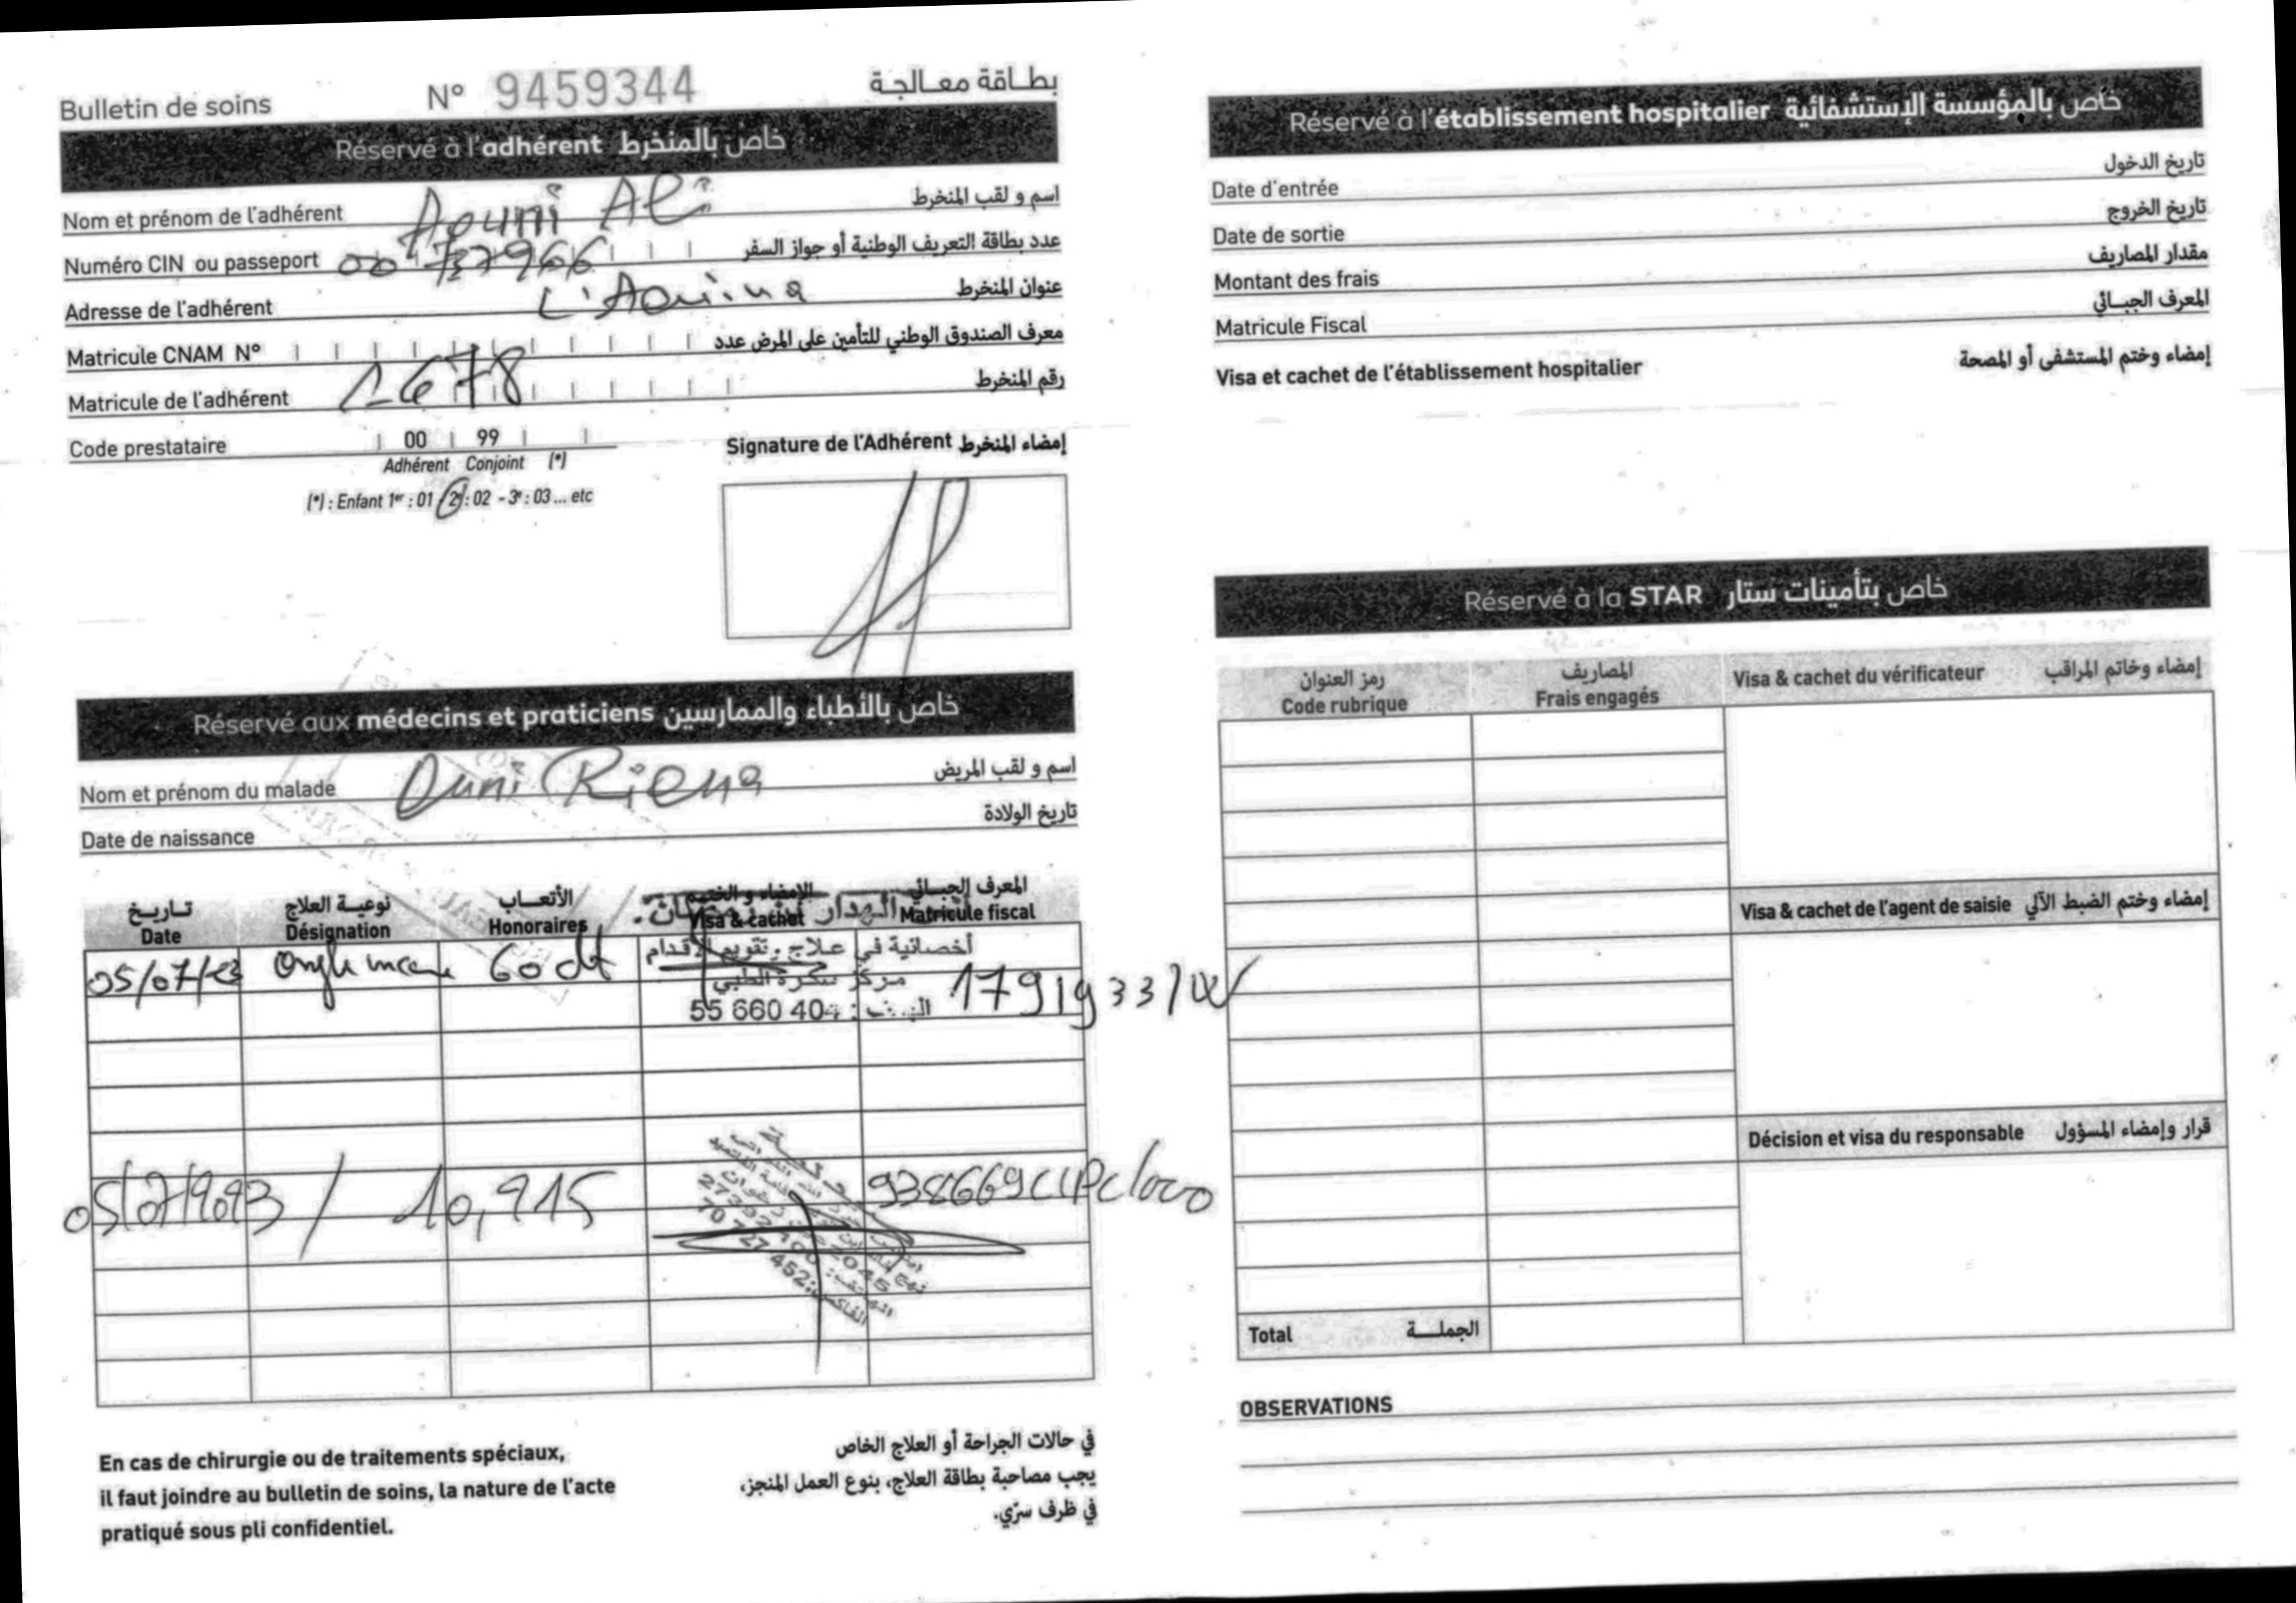 Bulletin de soins N° 9459344 بطاقة معالجة
Réservé à l'adhérent خاص بالمنخرط
Nom et prénom de l'adhérent Aouni Ali اسم و لقب المنخرط
Numéro CIN ou passeport عدد بطاقة التعريف الوطنية أو جواز السفر
Adresse de l'adhérent L'Aouina عنوان المنخرط
Matricule CNAM N° معرف الصندوق الوطني للتأمين على المرض عدد
Matricule de l'adhérent 1678 رقم المنخرط
Code prestataire 00 99
Adhérent Conjoint (*)
(*) : Enfant 1er : 01 - 2e : 02 - 3e : 03 ... etc
Signature de l'Adhérent إمضاء المنخرط
Réservé aux médecins et praticiens خاص بالأطباء والممارسين
Nom et prénom du malade Ouni اسم و لقب المريض
Date de naissance تاريخ الولادة
تاريخ نوعية العلاج الأتعاب الإمضاء و الختم المعرف الجبائي
Date Désignation Honoraires Visa & cachet Matricule fiscal
الهدار
05/07/23 60 dt أخصائية في علاج و تقويم الأقدام
مركز سكرة الطبي
55 660 404 1791933/W
05/07/2023 / 10,915 938669
En cas de chirurgie ou de traitements spéciaux,
il faut joindre au bulletin de soins, la nature de l'acte
pratiqué sous pli confidentiel.
في حالات الجراحة أو العلاج الخاص
يجب مصاحبة بطاقة العلاج، بنوع العمل المنجز،
في ظرف سرّي.
Réservé à l'établissement hospitalier خاص بالمؤسسة الإستشفائية
Date d'entrée تاريخ الدخول
Date de sortie تاريخ الخروج
Montant des frais مقدار المصاريف
Matricule Fiscal المعرف الجبائي
Visa et cachet de l'établissement hospitalier إمضاء وختم المستشفى أو المصحة
Réservé à la STAR خاص بتأمينات ستار
رمز العنوان المصاريف
Code rubrique Frais engagés
Visa & cachet du vérificateur إمضاء وخاتم المراقب
Visa & cachet de l'agent de saisie إمضاء وختم الضبط الآلي
Décision et visa du responsable قرار وإمضاء المسؤول
Total الجملة
OBSERVATIONS